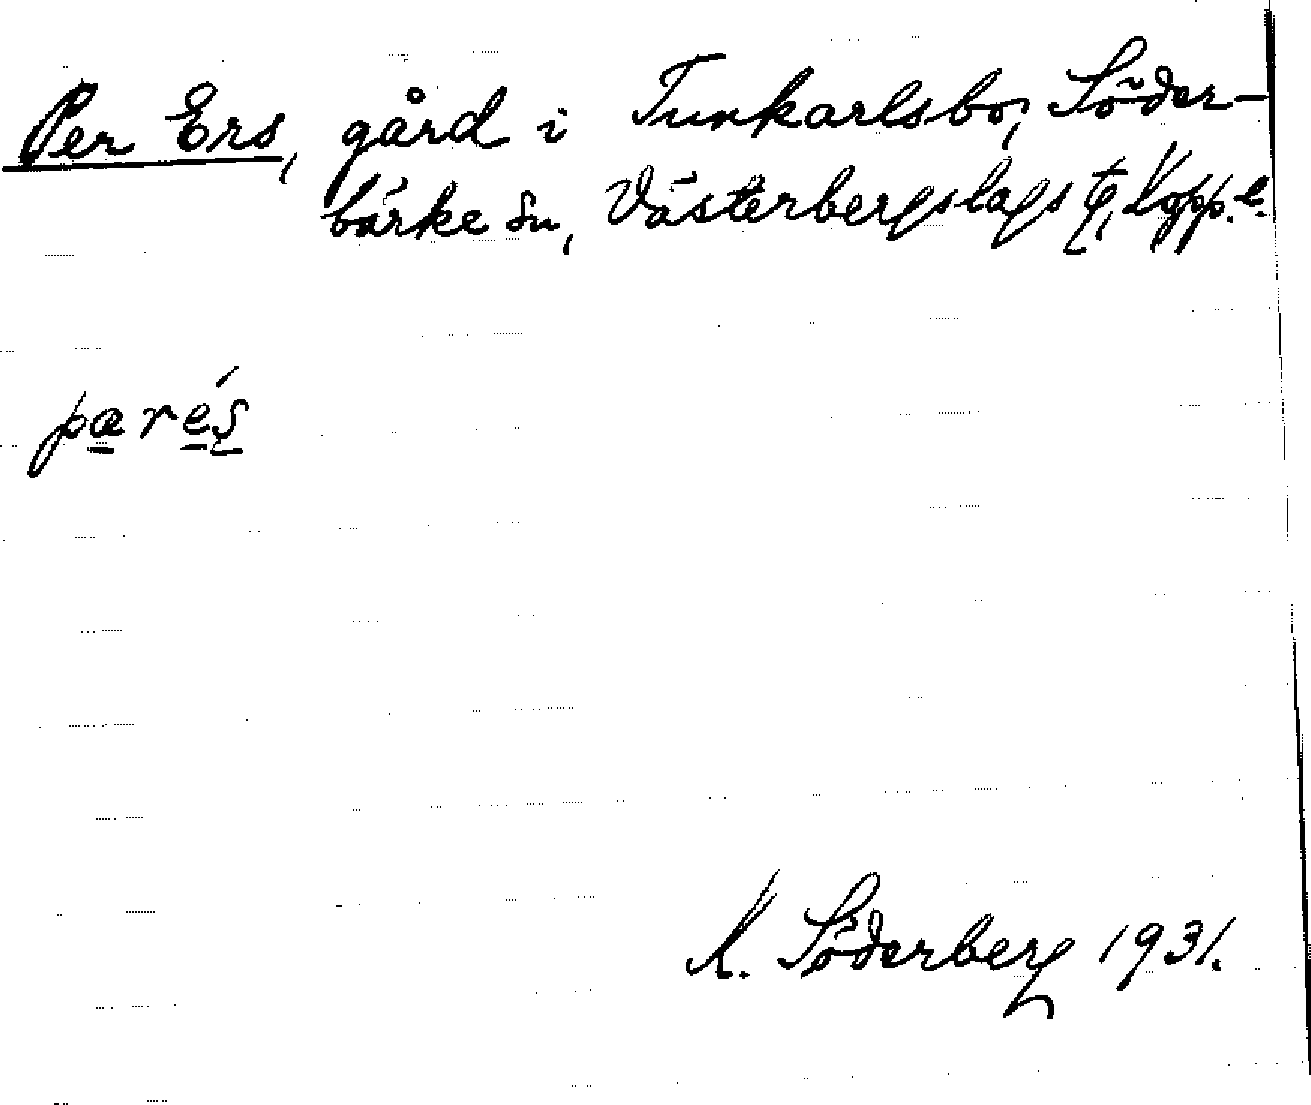 Per Ers, gård i Tunkarlsbo, Söder-
bärke sn, Västerbergslags tg, Kopp. l.
pærés
K. Söderberg 1931.